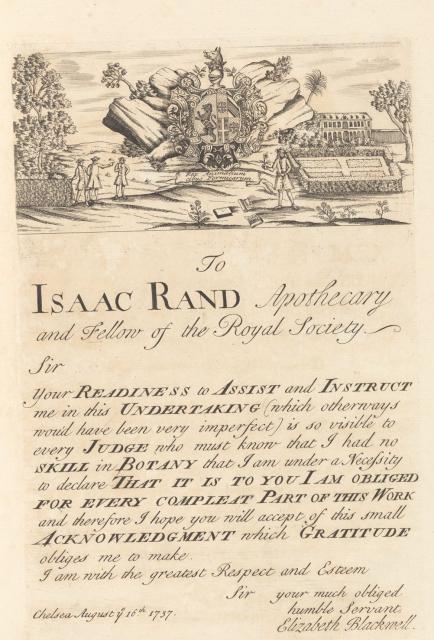 Ex Animalium
cibus Formicarum
To
ISAAC RAND Apothecary
and Fellow of the Royal Society.
Sir
Your READINESS to ASSIST and INSTRUCT
me in this UNDERTAKING (which otherways
would have been very imperfect) is so visible to
every JUDGE who must know that I had no
SKILL in BOTANY that I am under a Necessity
to declare THAT IT IS TO YOU I AM OBLIGED
FOR EVERY COMPLEAT PART OF THIS WORK
and therefore I hope you will accept of this small
ACKNOWLEDGMENT which GRATITUDE
obliges me to make.
I am with the greatest Respect and Esteem
Sir your much obliged
humble Servant
Chelsea August yᵉ 16ᵗʰ 1737. Elizabeth Blackwell.